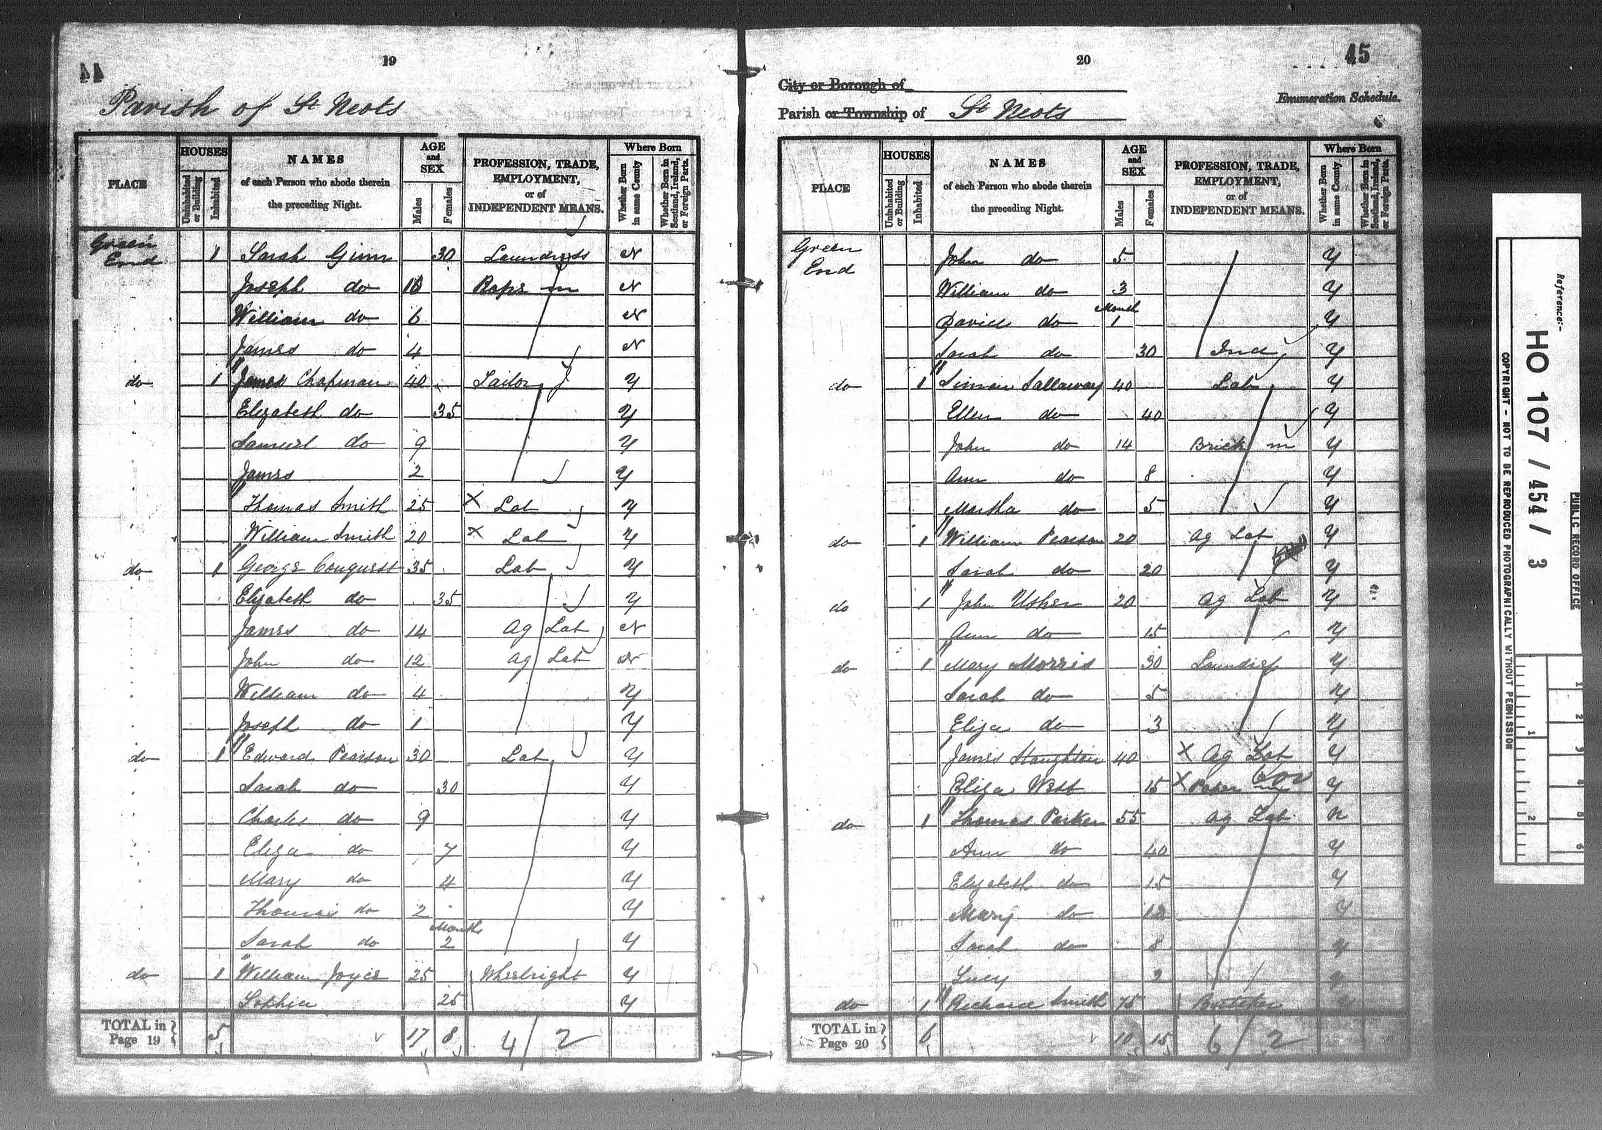 44
19
Parish of St Neots
PLACE
HOUSES
Uninhabited or Building
Inhabited
NAMES
of each Person who abode therein
the preceding Night.
AGE
and
SEX
Males
Females
PROFESSION, TRADE,
EMPLOYMENT,
or of
INDEPENDENT MEANS.
Where Born
Whether Born in same County
Whether Born in Scotland, Ireland, or Foreign Parts.
Green End 1 Sarah Ginn 30 Laundress N
Joseph do Rope m N
William do 6 N
James do 4 N
do 1 James Chapman 40 Tailor Y
Elizabeth do 35 Y
Samuel do 9 Y
James 2 Y
Thomas Smith 25 X Lab Y
William Smith 20 X Lab Y
do 1 George Conquest 35 Lab Y
Elizabeth do 35 Y
James do 14 Ag Lab N
John do 12 Ag Lab N
William do 4 Y
Joseph do 1 Y
do 1 Edward Pearson 30 Lab Y
Sarah do 30 Y
Charles do 9 Y
Eliza do 7 Y
Mary do 4 Y
Thomas do 2 Y
Sarah do Months 2 Y
do 1 William Joyce 25 Wheelright Y
Sophia 25 Y
TOTAL in Page 19 5 17 8 4/2
45
20
City or Borough of
Parish or Township of St Neots
Enumeration Schedule.
PLACE
HOUSES
Uninhabited or Building
Inhabited
NAMES
of each Person who abode therein
the preceding Night.
AGE
and
SEX
Males
Females
PROFESSION, TRADE,
EMPLOYMENT,
or of
INDEPENDENT MEANS.
Where Born
Whether Born in same County
Whether Born in Scotland, Ireland, or Foreign Parts.
Green End John do 5 Y
William do 3 Y
David do Month 1 Y
Sarah do 30 Ind Y
do 1 Simon Sallaway 40 Lab Y
Ellen do 40 Y
John do 14 Brick m Y
Ann do 8 Y
Martha do 5 Y
do 1 William Pearson 20 Ag Lab Y
Sarah do 20 Y
do 1 John Usher 20 Ag Lab Y
Ann do 15 Y
do 1 Mary Morris 30 Laundress Y
Sarah do 5 Y
Eliza do 3 Y
James Staughton 40 X Ag Lab Y
Eliza West 15 X Paper m Y
do 1 Thomas Parker 55 Ag Lab N
Ann do 40 Y
Elizabeth do 15 Y
Mary do 12 Y
Sarah do 8 Y
Lucy 2 Y
do 1 Richard Smith 75 Y
TOTAL in Page 20 6 10 15 6/2
Reference:-
HO 107/454/3
COPYRIGHT - NOT TO BE REPRODUCED PHOTOGRAPHICALLY WITHOUT PERMISSION
PUBLIC RECORD OFFICE
1
2